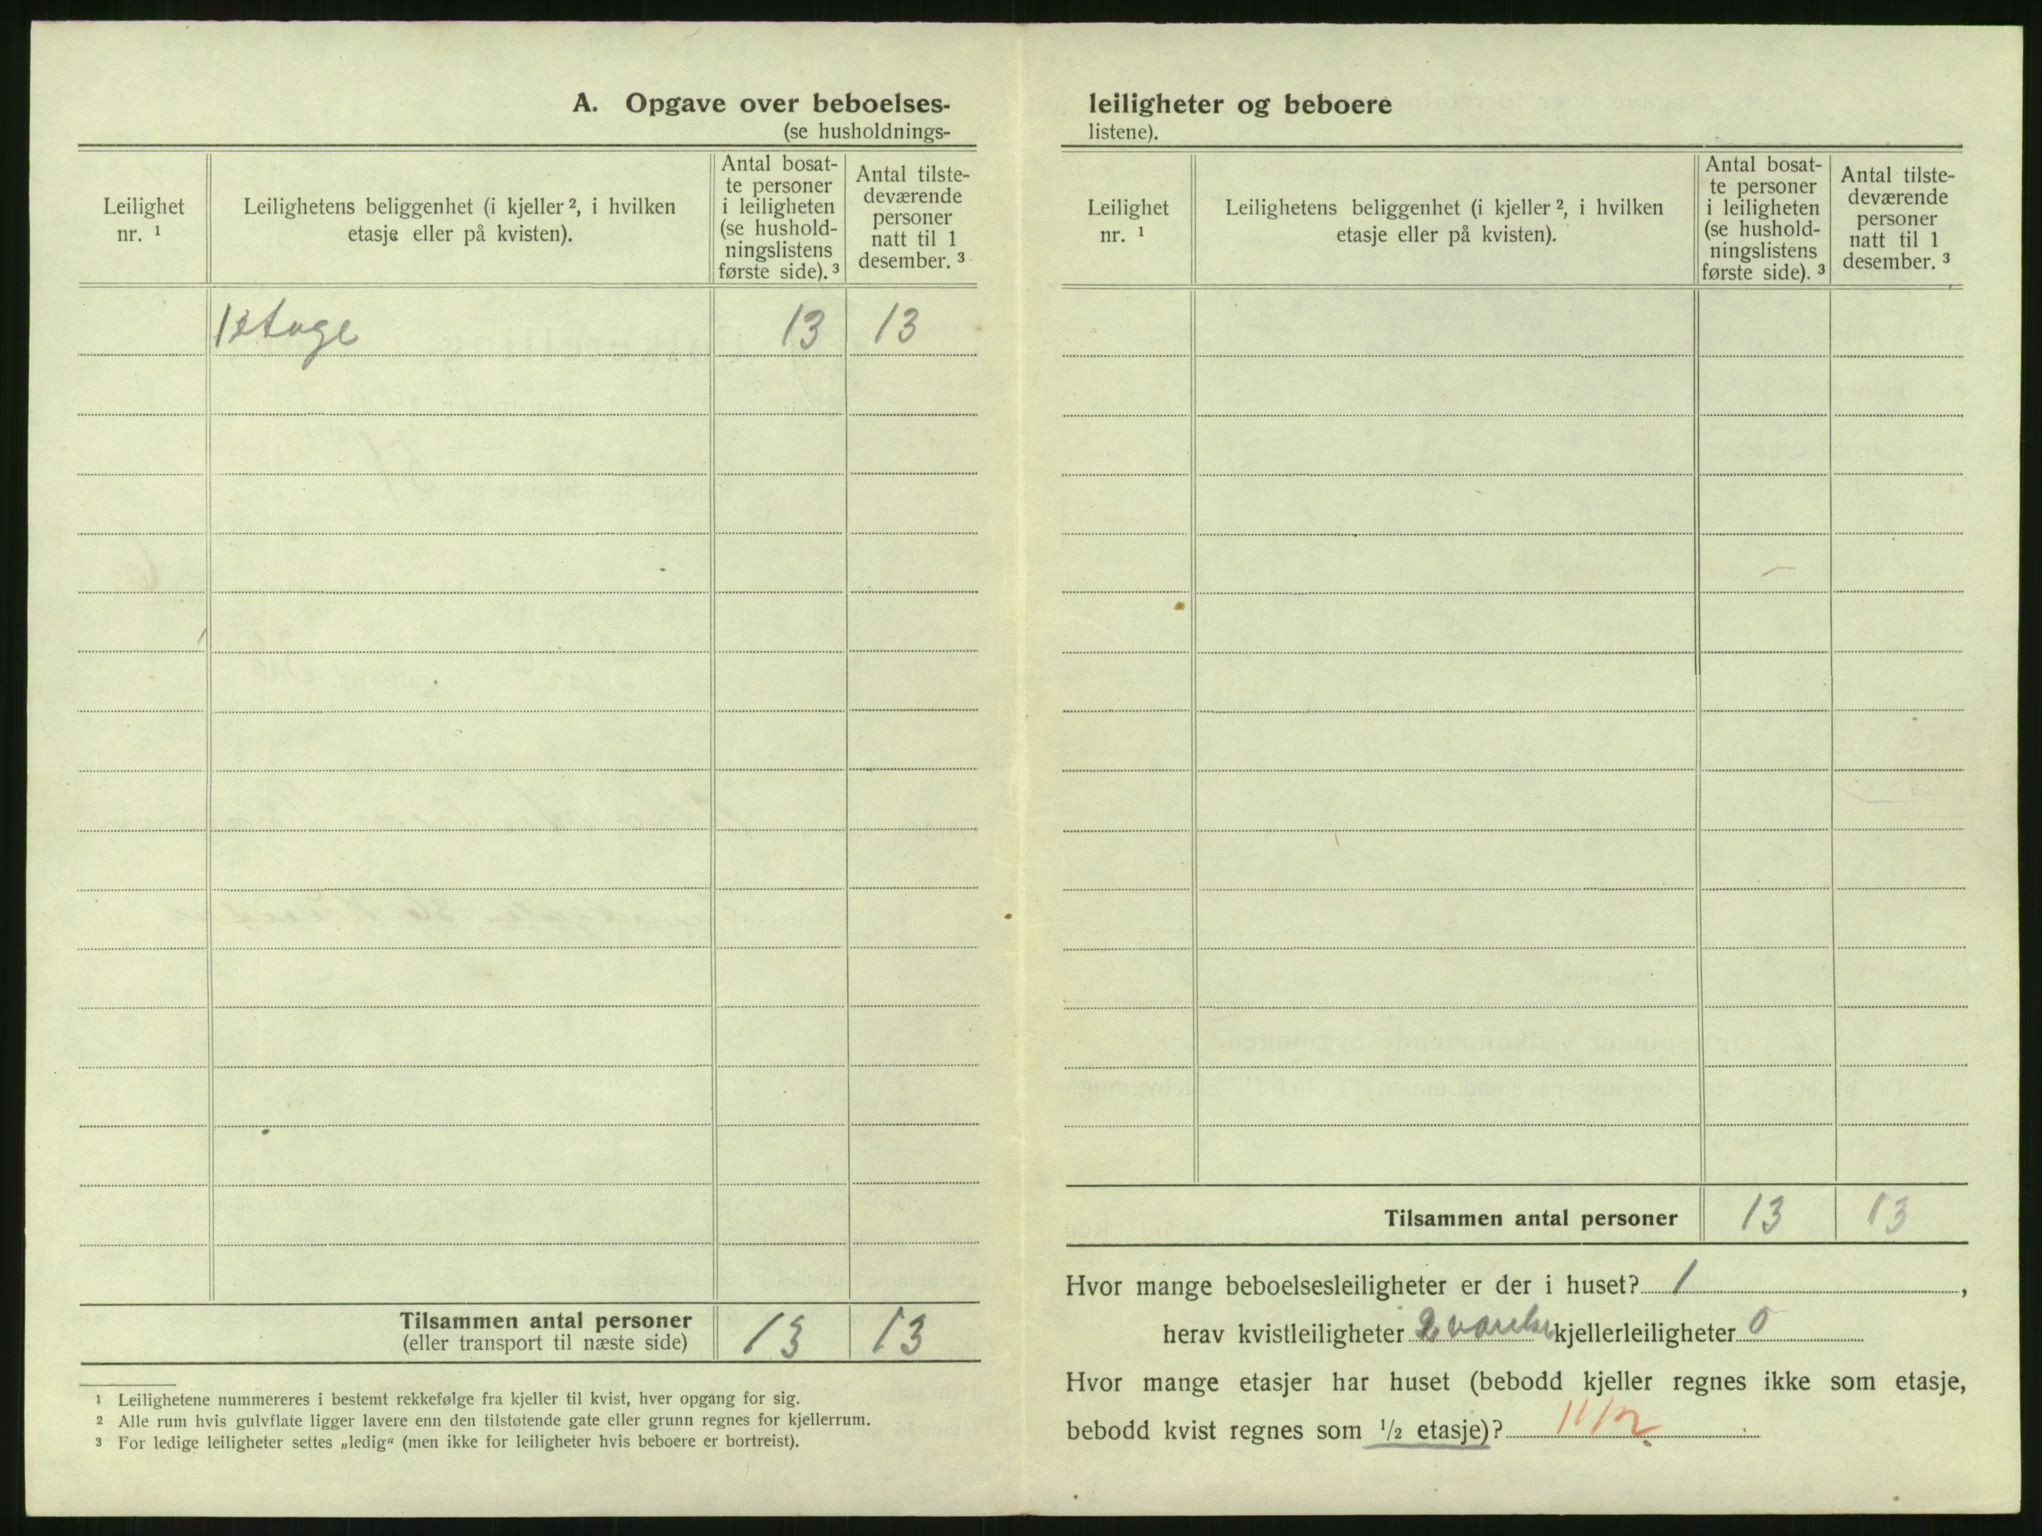 A. Opgave over beboelses-
(se husholdnings-
Leilighet
nr. ¹
Leilighetens beliggenhet (i kjeller ², i hvilken
etasje eller på kvisten).
Antal bosat-
te personer
i leiligheten
(se hushold-
ningslistens
første side). ³
Antal tilste-
deværende
personer
natt til 1
desember. ³
1 Etage 13 13
Tilsammen antal personer 13 13
(eller transport til næste side)
¹ Leilighetene nummereres i bestemt rekkefølge fra kjeller til kvist, hver opgang for sig.
² Alle rum hvis gulvflate ligger lavere enn den tilstøtende gate eller grunn regnes for kjellerrum.
³ For ledige leiligheter settes „ledig“ (men ikke for leiligheter hvis beboere er bortreist).
leiligheter og beboere
listene).
Leilighet
nr. ¹
Leilighetens beliggenhet (i kjeller ², i hvilken
etasje eller på kvisten).
Antal bosat-
te personer
i leiligheten
(se hushold-
ningslistens
første side). ³
Antal tilste-
deværende
personer
natt til 1
desember. ³
Tilsammen antal personer 13 13
Hvor mange beboelsesleiligheter er der i huset? 1 ,
herav kvistleiligheter 2 kjellerleiligheter 0
Hvor mange etasjer har huset (bebodd kjeller regnes ikke som etasje,
bebodd kvist regnes som ½ etasje)? 1 1/2